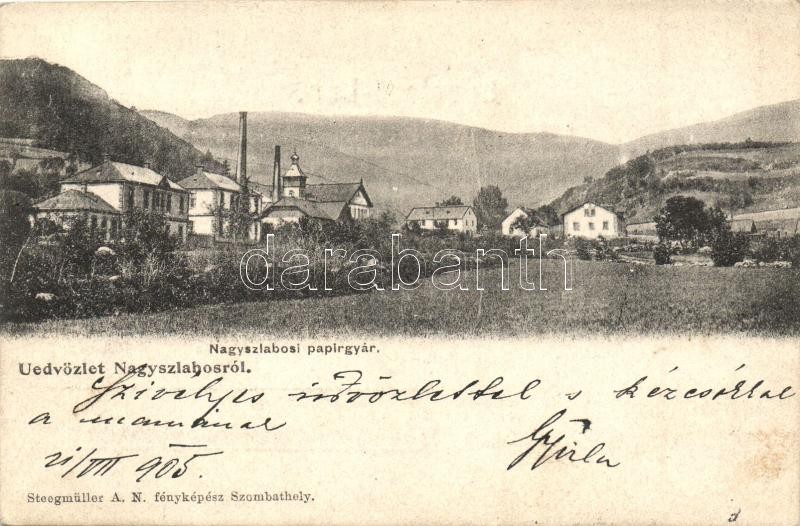 darabanth
Nagyszlabosi papirgyár.
Uedvözlet Nagyszlabosról.
Szivélyes üdvözlettel s kézcsókkal
a mamának
21/VII 905.
Gyula
Steegmüller A. N. fényképész Szombathely.